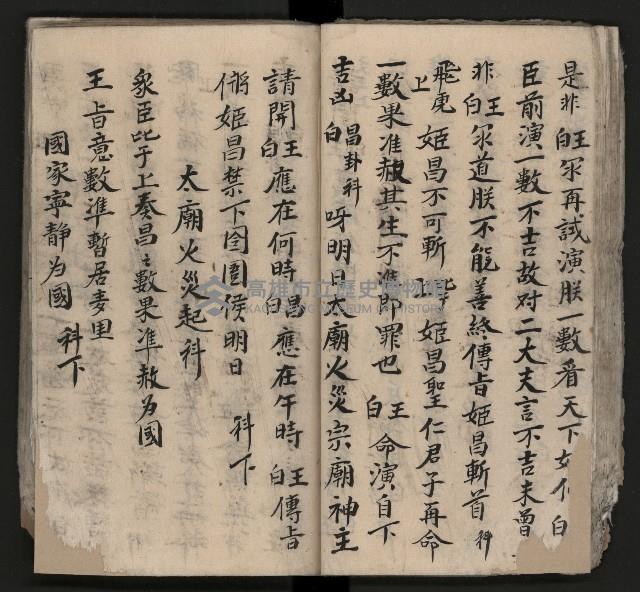 是非 王白 尔再試演朕一數看天下如何 白
臣前演一數不吉故对二大夫言不吉未曾
非 王白 尔道朕不能善終傳旨姬昌斬首 科
飛虎上 姬昌不可斬 上 姬昌聖仁君子再命
一數果准赦其生不準即罪也 王白 命演自下
吉凶 昌卦科 白 呀明日太廟火災宗廟神主
請開 王白 應在何時 昌白 應在午時 王白 傳旨
姬昌禁下囹圄候明日 科下
太廟火災起科
眾臣比干上奏昌之數果準赦为國
王旨意數準暫居羑里
國家寧静为國 科下
高雄市立歷史博物館
KAOHSIUNG MUSEUM OF HISTORY